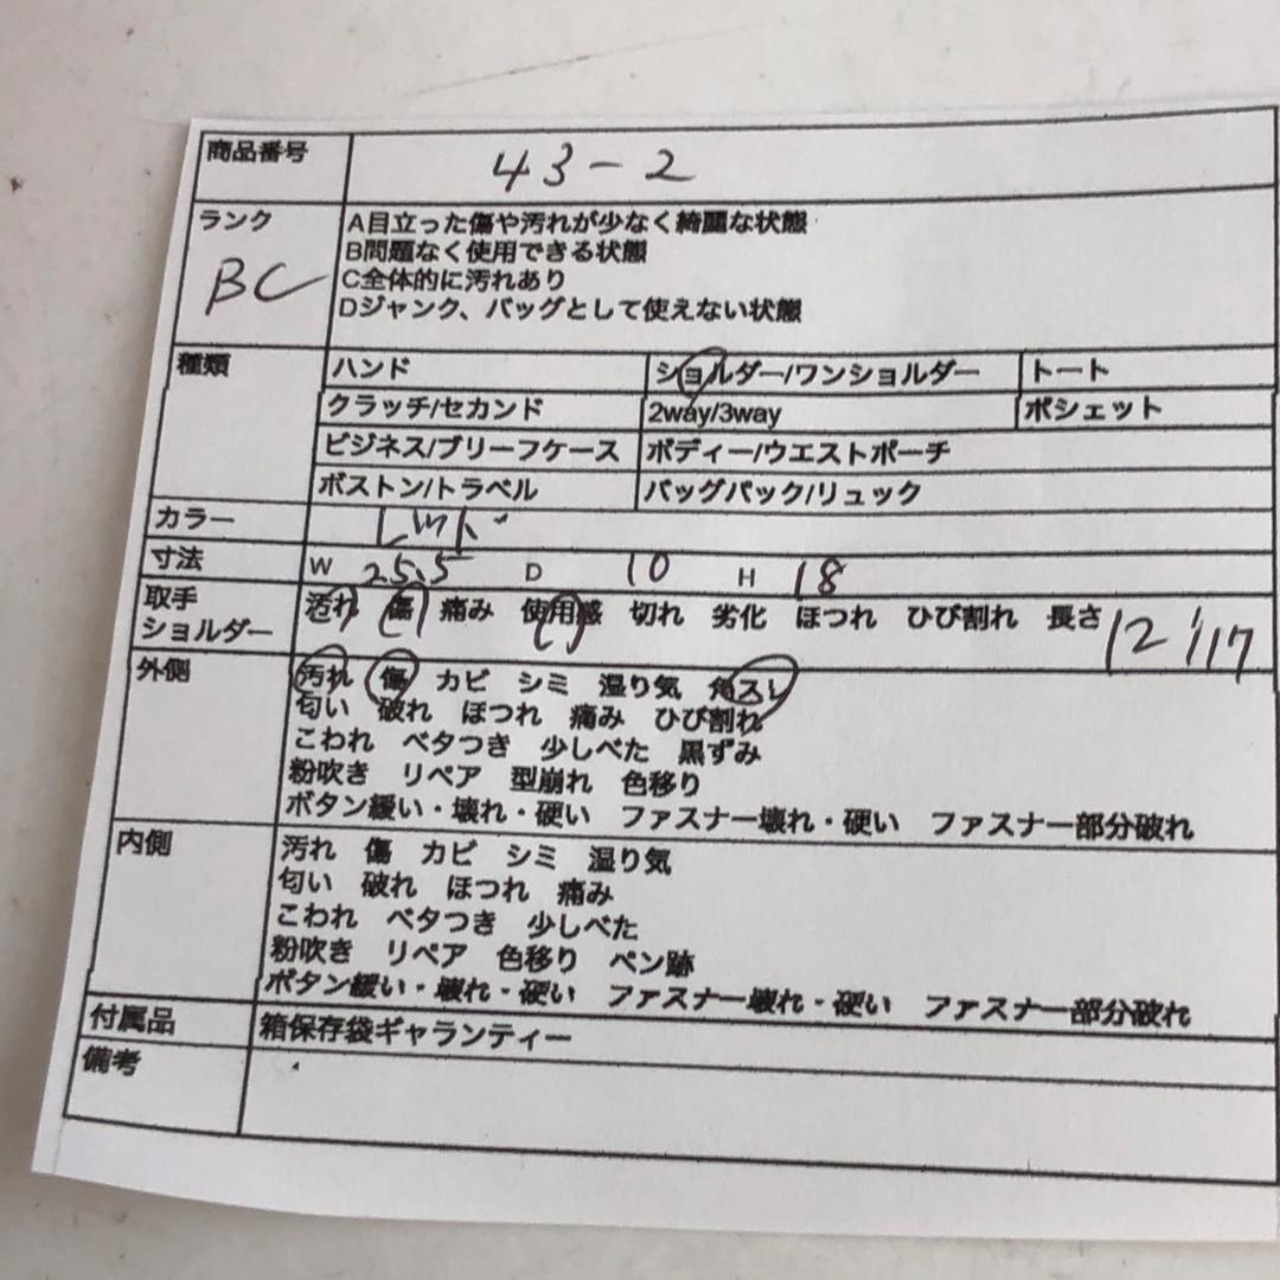 商品番号 43-2
ランク BC
A目立った傷や汚れが少なく綺麗な状態
B問題なく使用できる状態
C全体的に汚れあり
Dジャンク、バッグとして使えない状態
種類 ハンド ショルダー/ワンショルダー トート
クラッチ/セカンド 2way/3way ポシェット
ビジネス/ブリーフケース ボディー/ウエストポーチ
ボストン/トラベル バッグパック/リュック
カラー レッド
寸法 W 25.5 D 10 H 18
取手
ショルダー
汚れ 傷 痛み 使用感 切れ 劣化 ほつれ ひび割れ 長さ 117
外側 汚れ 傷 カビ シミ 湿り気 角スレ
匂い 破れ ほつれ 痛み ひび割れ
こわれ ベタつき 少しべた 黒ずみ
粉吹き リペア 型崩れ 色移り
ボタン緩い・壊れ・硬い ファスナー壊れ・硬い ファスナー部分破れ
内側 汚れ 傷 カビ シミ 湿り気
匂い 破れ ほつれ 痛み
こわれ ベタつき 少しべた
粉吹き リペア 色移り ペン跡
ボタン緩い・壊れ・硬い ファスナー壊れ・硬い ファスナー部分破れ
付属品 箱保存袋ギャランティー
備考